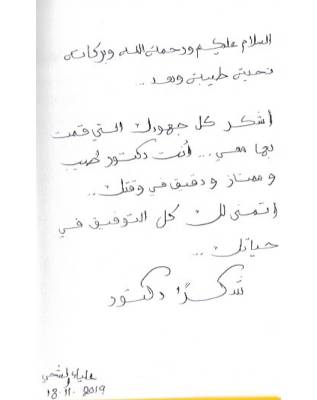 السلام عليكم ورحمة الله وبركاته
تحية طيبة وبعد ..
أشكر كل جهودك التي قمت
بها معي ... أنت دكتور طيب
و ممتاز و دقيق في وقتك ..
أتمنى لك كل التوفيق في
حياتك ..
شكرًا دكتور
علياء
18.11.2019